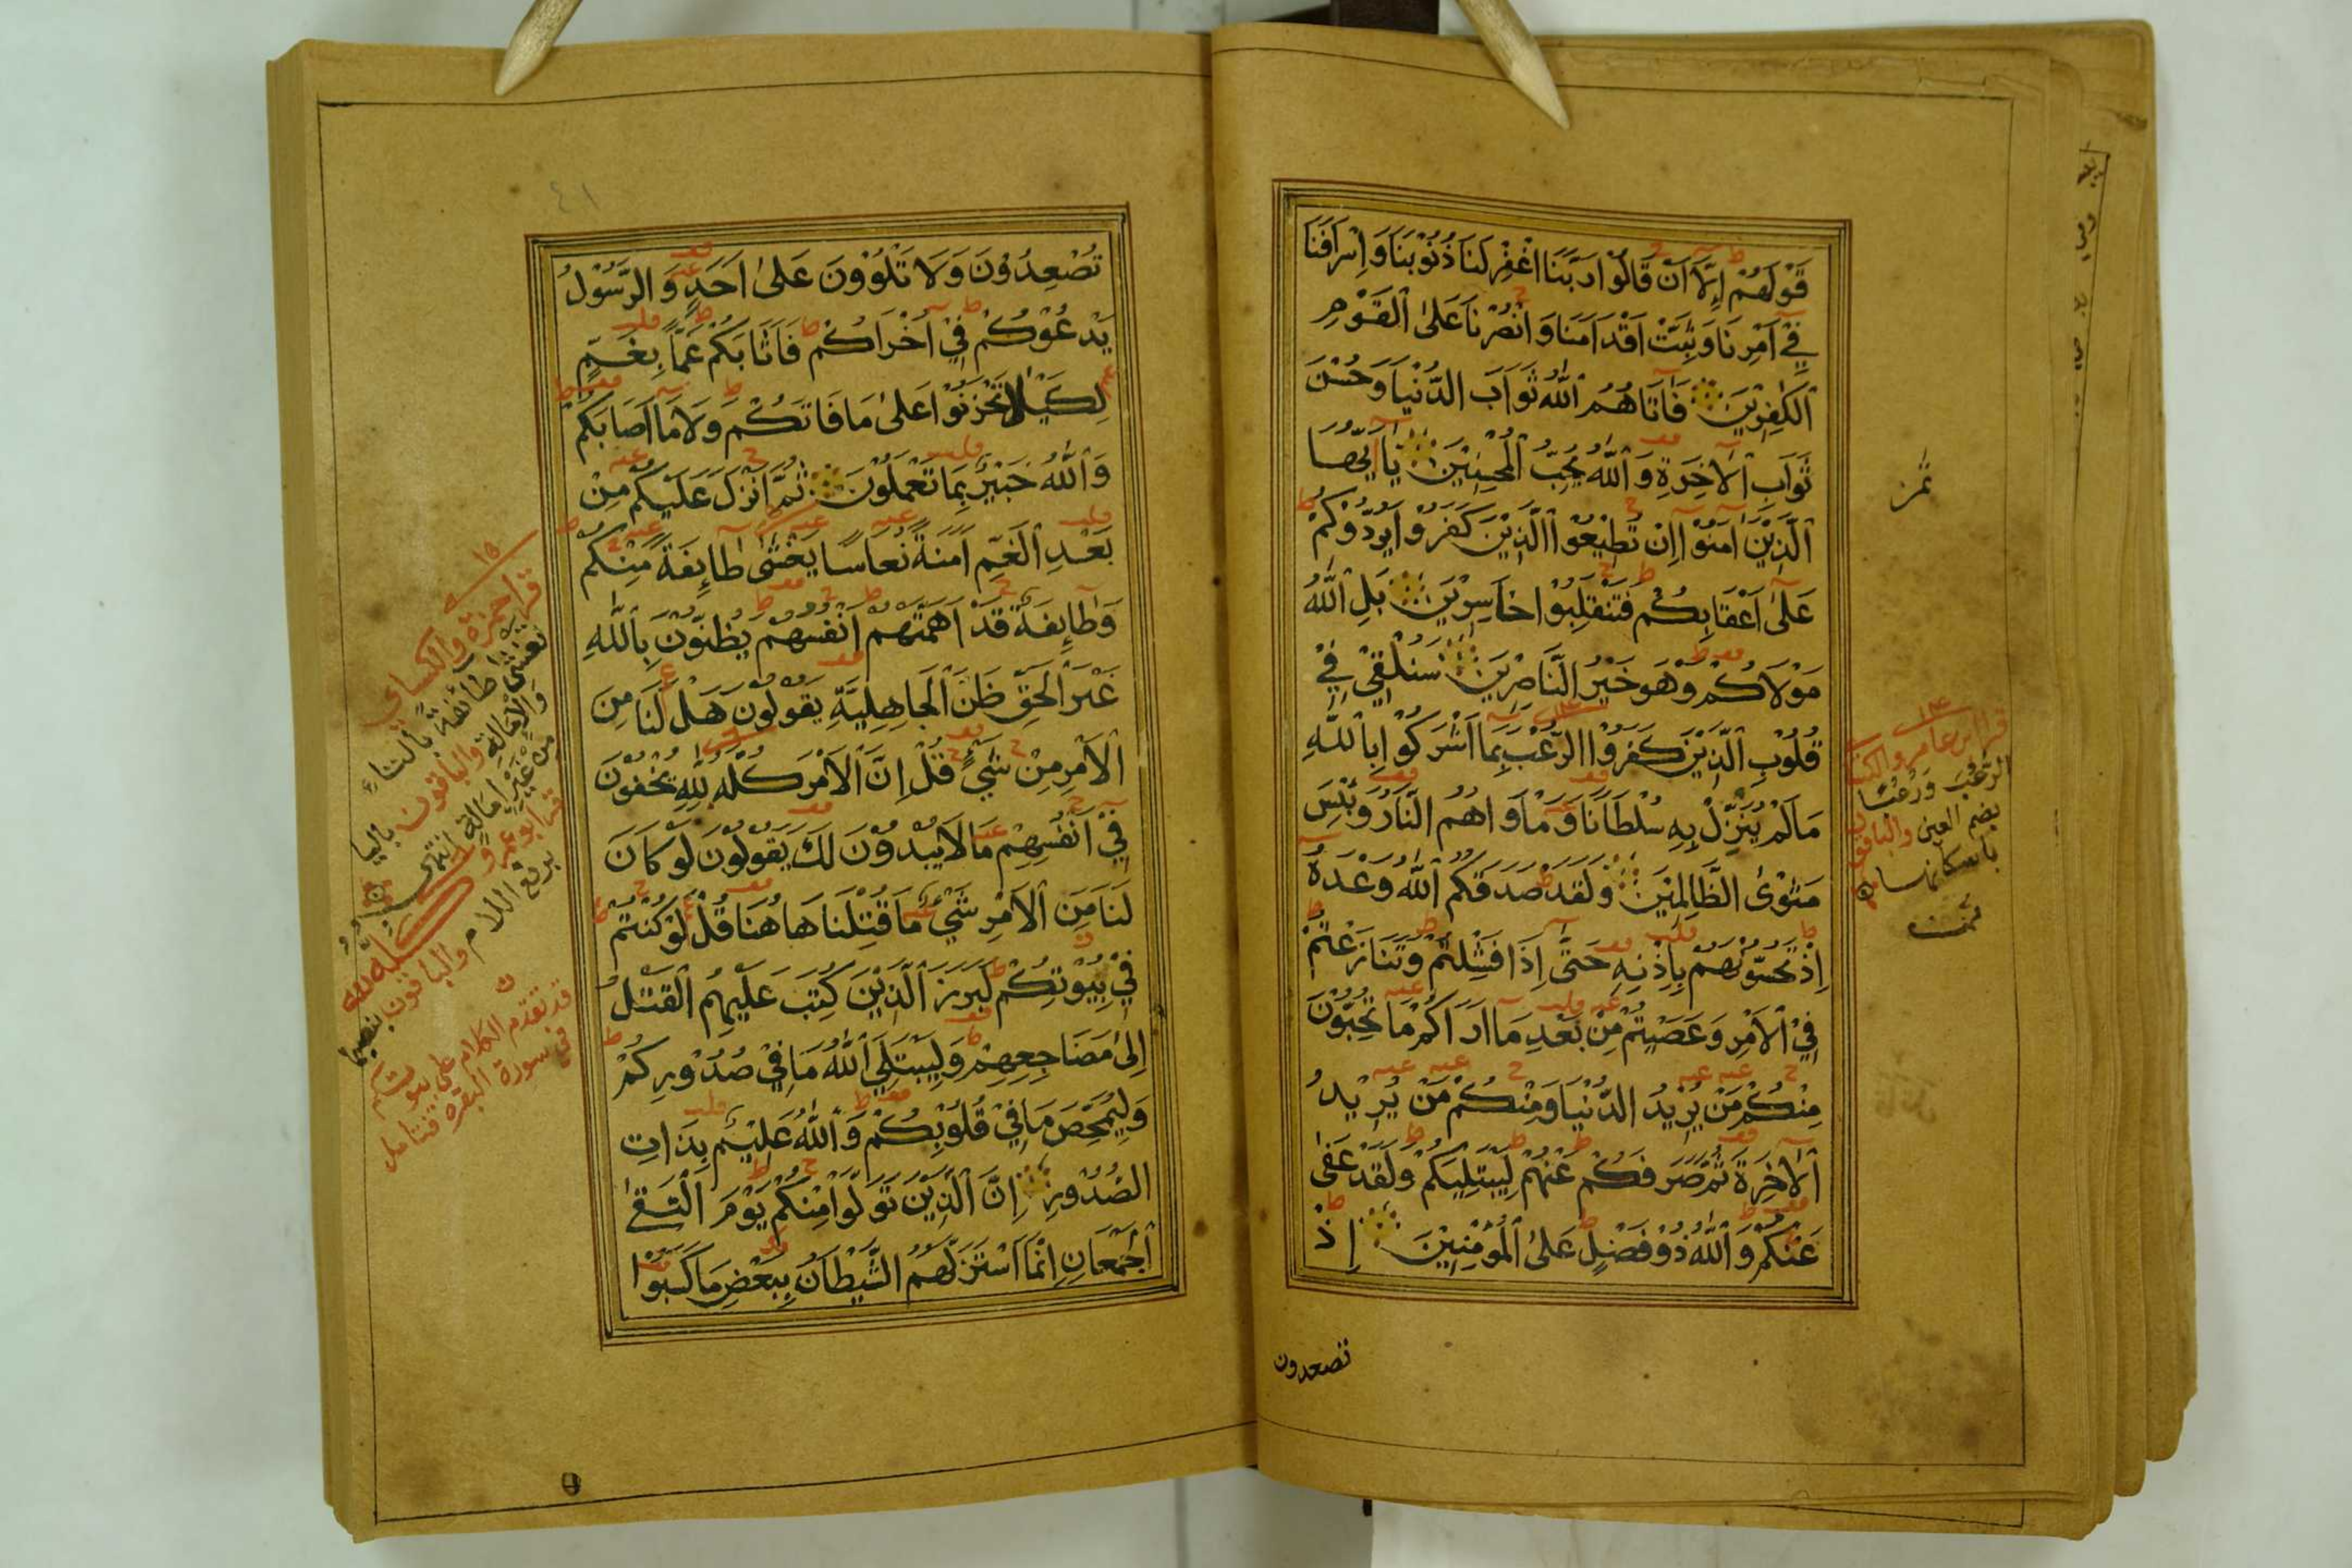 قَوْلَهُمْ اِلَّا اَنْ قَالُوْا رَبَّنَا اغْفِرْ لَنَا ذُنُوْبَنَا وَاِسْرَافَنَا
فِيْ اَمْرِنَا وَثَبِّتْ اَقْدَامَنَا وَانْصُرْنَا عَلَى الْقَوْمِ
الْكٰفِرِيْنَ فَاٰتَاهُمُ اللّٰهُ ثَوَابَ الدُّنْيَا وَحُسْنَ
ثَوَابِ الْاٰخِرَةِ وَاللّٰهُ يُحِبُّ الْمُحْسِنِيْنَ يَا اَيُّهَا
الَّذِيْنَ اٰمَنُوْا اِنْ تُطِيْعُوا الَّذِيْنَ كَفَرُوْا يَرُدُّوْكُمْ
عَلٰى اَعْقَابِكُمْ فَتَنْقَلِبُوْا خَاسِرِيْنَ بَلِ اللّٰهُ
مَوْلَاكُمْ وَهُوَ خَيْرُ النَّاصِرِيْنَ سَنُلْقِيْ فِيْ
قُلُوْبِ الَّذِيْنَ كَفَرُوا الرُّعْبَ بِمَا اَشْرَكُوْا بِاللّٰهِ
مَالَمْ يُنَزِّلْ بِهِ سُلْطَانًا وَمَاْوَاهُمُ النَّارُ وَبِئْسَ
مَثْوَى الظَّالِمِيْنَ وَلَقَدْ صَدَقَكُمُ اللّٰهُ وَعْدَهٗ
اِذْ تَحُسُّوْنَهُمْ بِاِذْنِهِ حَتّٰى اِذَا فَشِلْتُمْ وَتَنَازَعْتُمْ
فِيْ الْاَمْرِ وَعَصَيْتُمْ مِنْ بَعْدِ مَا اَرَاكُمْ مَا تُحِبُّوْنَ
مِنْكُمْ مَنْ يُرِيْدُ الدُّنْيَا وَمِنْكُمْ مَنْ يُرِيْدُ
الْاٰخِرَةَ ثُمَّ صَرَفَكُمْ عَنْهُمْ لِيَبْتَلِيَكُمْ وَلَقَدْ عَفٰى
عَنْكُمْ وَاللّٰهُ ذُوْ فَضْلٍ عَلَى الْمُؤْمِنِيْنَ اِذْ
تصعدون
ثمن
قرأ ابن عامر
الرُّعُبَ وَرُعُبًا
بضم العين والباقون
باسكانها
تُصْعِدُوْنَ وَلَا تَلْوُوْنَ عَلٰى اَحَدٍ وَالرَّسُوْلُ
يَدْعُوْكُمْ فِيْ اُخْرَاكُمْ فَاَثَابَكُمْ غَمًّا بِغَمٍّ
لِكَيْلَا تَحْزَنُوْا عَلٰى مَا فَاتَكُمْ وَلَا مَا اَصَابَكُمْ
وَاللّٰهُ خَبِيْرٌ بِمَا تَعْمَلُوْنَ ثُمَّ اَنْزَلَ عَلَيْكُمْ مِنْ
بَعْدِ الْغَمِّ اَمَنَةً نُعَاسًا يَغْشٰى طَائِفَةً مِنْكُمْ
وَطَائِفَةٌ قَدْ اَهَمَّتْهُمْ اَنْفُسُهُمْ يَظُنُّوْنَ بِاللّٰهِ
غَيْرَ الْحَقِّ ظَنَّ الْجَاهِلِيَّةِ يَقُوْلُوْنَ هَلْ لَنَا مِنَ
الْاَمْرِ مِنْ شَيْءٍ قُلْ اِنَّ الْاَمْرَ كُلَّهُ لِلّٰهِ يُخْفُوْنَ
فِيْ اَنْفُسِهِمْ مَا لَا يُبْدُوْنَ لَكَ يَقُوْلُوْنَ لَوْ كَانَ
لَنَا مِنَ الْاَمْرِ شَيْءٌ مَا قُتِلْنَا هَاهُنَا قُلْ لَوْ كُنْتُمْ
فِيْ بُيُوْتِكُمْ لَبَرَزَ الَّذِيْنَ كُتِبَ عَلَيْهِمُ الْقَتْلُ
اِلٰى مَضَاجِعِهِمْ وَلِيَبْتَلِيَ اللّٰهُ مَا فِيْ صُدُوْرِكُمْ
وَلِيُمَحِّصَ مَا فِيْ قُلُوْبِكُمْ وَاللّٰهُ عَلِيْمٌ بِذَاتِ
الصُّدُوْرِ اِنَّ الَّذِيْنَ تَوَلَّوْا مِنْكُمْ يَوْمَ الْتَقٰى
الْجَمْعَانِ اِنَّمَا اسْتَزَلَّهُمُ الشَّيْطَانُ بِبَعْضِ مَا كَسَبُوْا
٤١
قرأ حمزة والكسائي
تغشى طائفة بالتاء
والامالة والباقون بالياء
من غير امالة انتهى
قرأ ابو عمرو كله لله
برفع اللام والباقون بنصبها
قد تقدم الكلام على بيوتكم
في سورة البقرة فتأمل